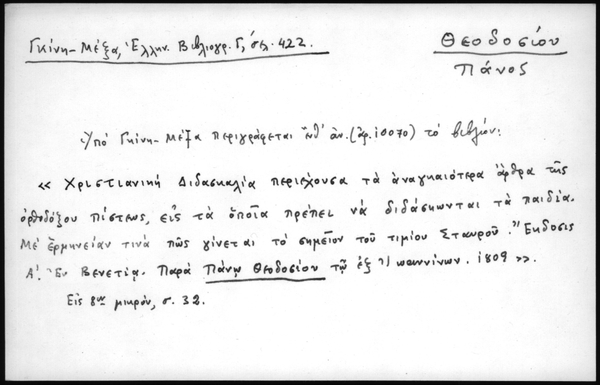 Γκίνη-Μέξα, Ἑλλην. Βιβλιογρ. Γ', σελ. 422.
Θεοδοσίου
Πάνος
Ὑπό Γκίνη-Μέξα περιγράφεται ὑπ' ἀρ. (ἀρ. 10070) τό βιβλίον:
« Χριστιανική Διδασκαλία περιέχουσα τά ἀναγκαιότερα ἄρθρα τῆς
ὀρθοδόξου πίστεως, εἰς τά ὁποῖα πρέπει νά διδάσκωνται τά παιδία.
Μέ ἑρμηνείαν τινά πῶς γίνεται τό σημεῖον τοῦ τιμίου Σταυροῦ. Ἔκδοσις
Α'. Ἐν Βενετίᾳ. Παρά Πάνῳ Θεοδοσίου τῷ ἐξ Ἰωαννίνων. 1809 ».
Εἰς 8ον μικρόν, σ. 32.